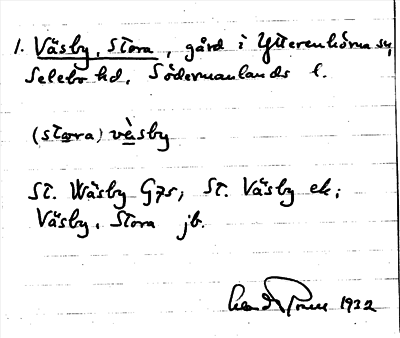 1. Väsby, Stora, gård i Ytterenhörna sn,
Selebo hd, Södermanlands l.
(stora) vàsby
St. Wäsby G7s; St. Väsby ek;
Väsby, Stora jb.
1932